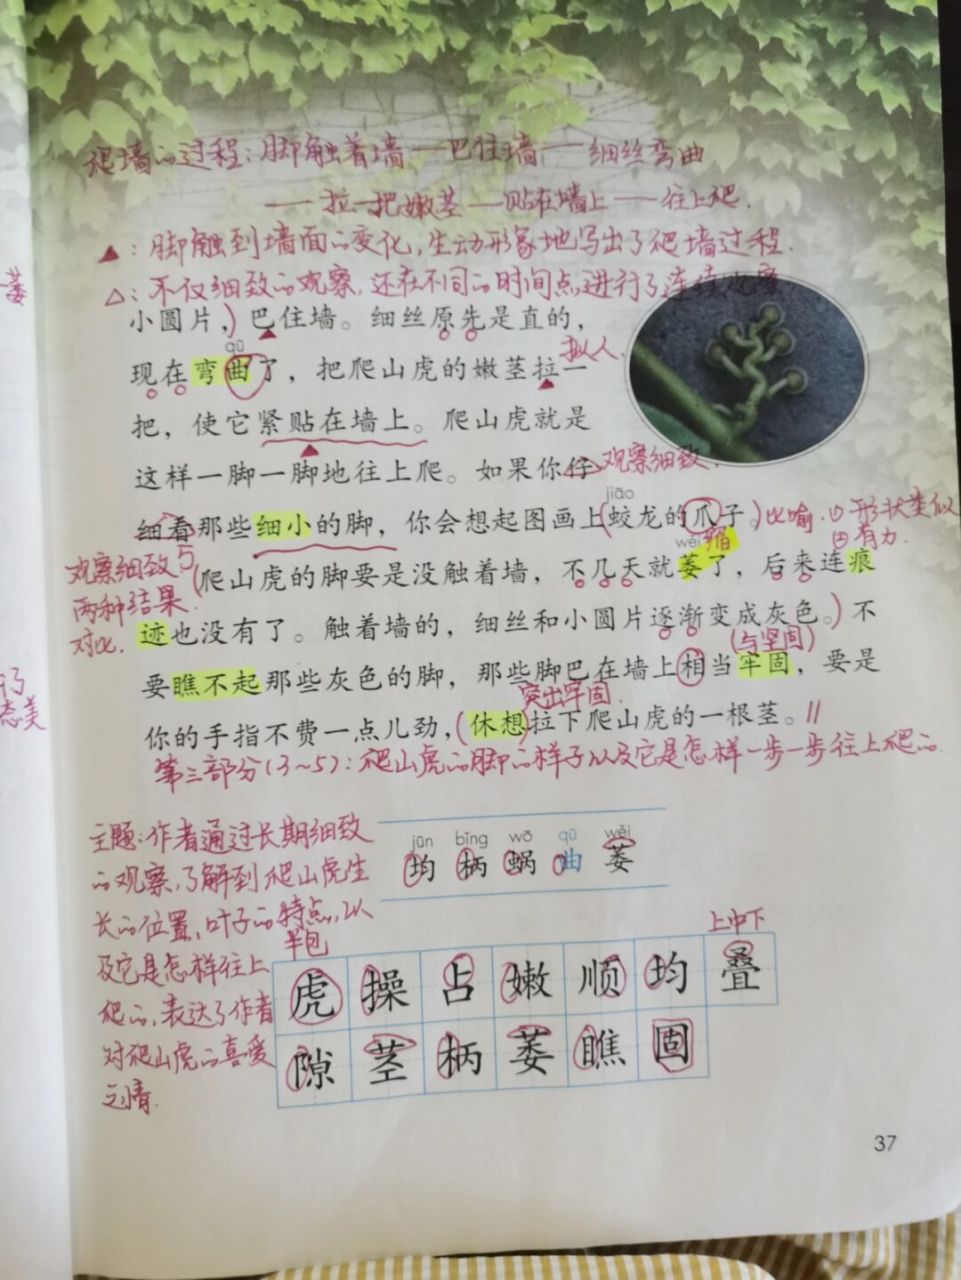 爬墙的过程：脚触着墙——巴住墙——细丝弯曲
——拉一把嫩茎——贴在墙上——往上爬.
▲：脚触到墙面的变化，生动形象地写出了爬墙过程.
△：不仅细致的观察，还在不同的时间点进行了连续观察
小圆片，）巴住墙。细丝原先是直的，
qū
拟人.
现在弯曲了，把爬山虎的嫩茎拉一
把，使它紧贴在墙上。爬山虎就是
这样一脚一脚地往上爬。如果你仔
观察细致.
jiāo
细看那些细小的脚，你会想起图画上（蛟龙的爪子。）
比喻.①形状类似
②有力.
wěi
缩
观察细致与
两种结果.
对比.
（爬山虎的脚要是没触着墙，不几天就萎了，后来连痕
迹也没有了。触着墙的，细丝和小圆片逐渐变成灰色。）不
（与坚固）
要瞧不起那些灰色的脚，那些脚巴在墙上相当牢固，要是
突出牢固.
你的手指不费一点儿劲，（休想）拉下爬山虎的一根茎。//
第三部分（3~5）：爬山虎的脚的样子以及它是怎样一步一步往上爬的.
主题：作者通过长期细致
的观察，了解到爬山虎生
长的位置，叶子的特点，以
及它是怎样往上
爬的，表达了作者
对爬山虎的喜爱
之情.
jūn bǐng wō qū wěi
均 柄 蜗 曲 萎
半包
上中下
虎 操 占 嫩 顺 均 叠
隙 茎 柄 萎 瞧 固
萎
态美
37